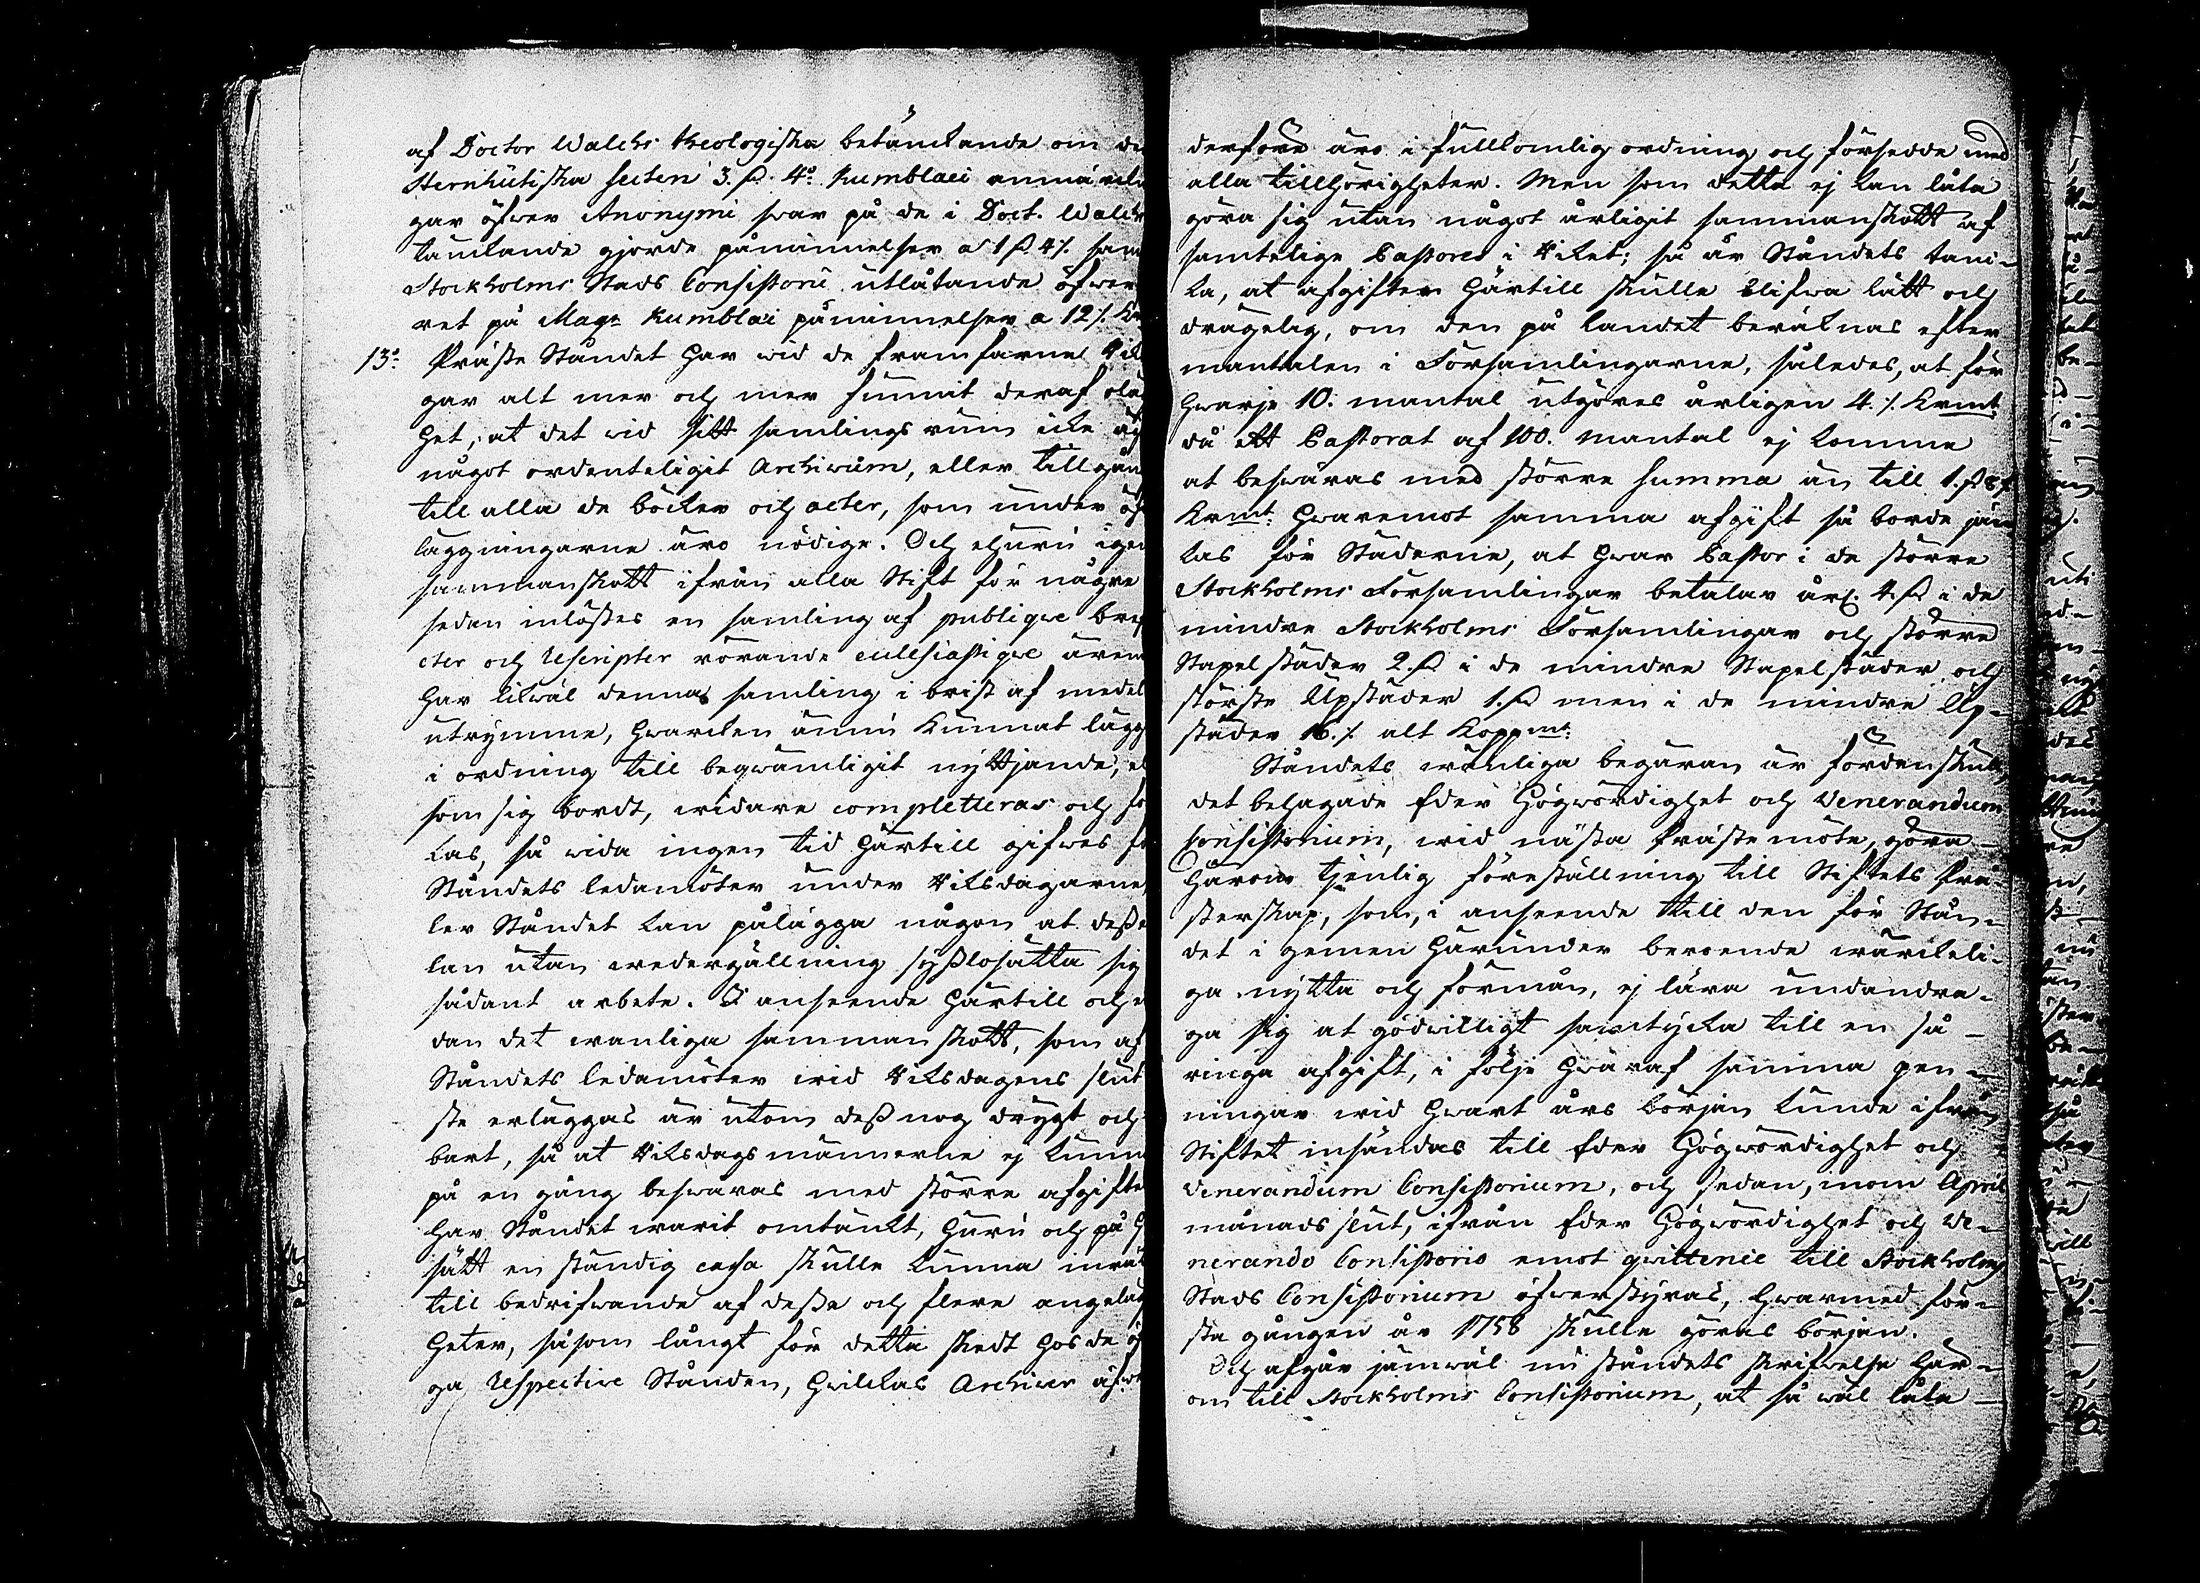 af Doctor Walchs theologiska betänkande om de
Hernhutiska secten 3. 4:o Kumblaei anmärkn
gar öfwer Anonymi swar på de i Doct. Walchs
tänkande gjorde påminnelser a 1 4 sam
Stockholms Stads Consistorii utlåtande öfwer
ret på Mag: Kumblaei påminnelser a 12
13:o Präste Ståndet har wid de framfarne Rik
gar alt mer och mer funnit deraf olä
het, at det wid sitt samlings rum icke äg
något ordenteligit Archivum, eller tillgån
till alla de böcker och acter, som under öf
läggningarne äro nödige. Och ehuru igen
sammanskott ifrån alla Stift för någre
sedan inlöstes en samling af publique bref
cter och Rescripter rörande ecclesiastique ären
har likwäl denna samling i brist af medel
utrymme, hwarken ännu kunnat lägg
i ordning till beqwämligit nyttjande, el
som sig bordt, widare completteras och fo
kas, så wida ingen tid härtill gifwes fö
Ståndets ledamöter under Riksdagarne,
ler Ståndet kan pålägga någon at desse
lan utan wedergällning sysslosätta sig
sådant arbete. I anseende härtill och
dan det wanliga sammanskott, som af
Ståndets ledamöter wid Riksdagens slut
ste erläggas är utom dess nog drygt och
bart, så at Riksdagsmännerne ej kunn
på en gång beswäras med större afgifte
har Ståndet warit omtänkt, huru och på h
sätt en ständig cassa skulle kunna inrät
till bedrifwande af desse och flere angeläg
heter, såsom långt för detta skedt hos de öf
ga Respective Stånden, hwilkas Archiver äfwe
derföre äro i fullkomlig ordning och försedde med
alla tillhörigheter. Men som detta ej kan låta
göra sig utan något årligit sammanskott af
samtelige Pastores i Riket; så är Ståndets tan-
ka, at afgiften härtill skulle blifwa lätt och
drägelig, om den på landet beräknas efter
mantalen i Församlingarne, således, at för
hwarje 10. mantal utgöres årligen 4. Krmt
då ett Pastorat af 100. mantal ej komme
at beswäras med större summa än till 1.
Krmt: hwaremot samma afgift så borde jäm
kas för Städerne, at hwar Pastor i de större
Stockholms Församlingar betalar årl. 4. i de
mindre Stockholms Församlingar och större
Stapelstäder 2. i de mindre Stapelstäder och
störste Upstäder 1. men i de mindre Up-
städer 16. alt Koppmt:
Ståndets wänliga begäran är fördenskull,
det behagade Eder Högwördighet och Venerandum
Consistorium, wid nästa Prästemöte, göra
härom tjenlig föreställning till Stiftets Prä-
sterskap, som, i anseende till den för Stån-
det i gemen härunder beroende märckeli-
ga nytta och förmån, ej lära undandra-
ga sig at godwilligt samtycka till en så
ringa afgift, i följe hwaraf samma pen-
ningar wid hwart års början kunde ifrån
Stiftet insändas till Eder Högwördighet och
Venerandum Consistorium, och sedan, inom April
månads slut, ifrån Eder Högwördighet och Ve-
nerando Consistorio emot qwittence till Stockholms
Stads Consistorium öfwerstyras, hwarmed för-
sta gången år 1758 skulle göras början.
Och afgår jämwäl nu ståndets skrifwelse här-
om till Stockholms Consistorium, at så wäl låta